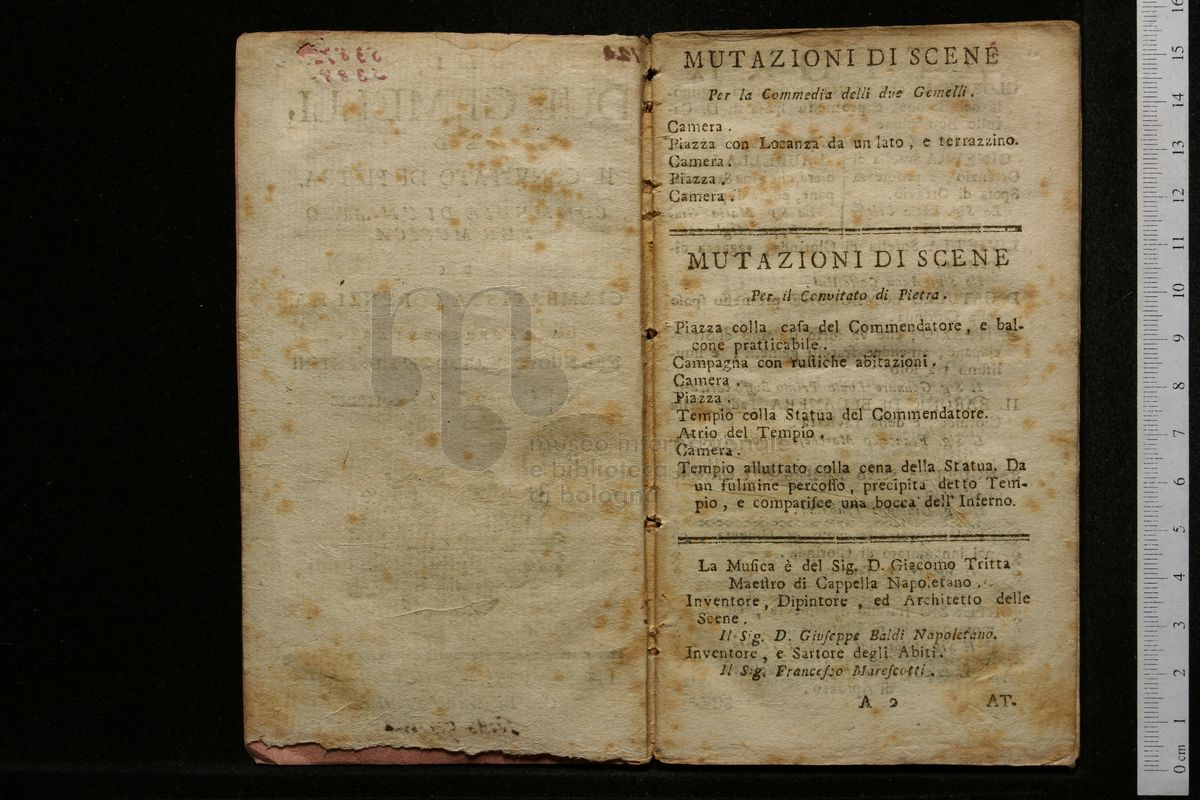 MUTAZIONI DI SCENE
Per la Commedia delli due Gemelli.
Camera.
Piazza con Locanza da un lato, e terrazzino.
Camera.
Piazza.
Camera.
MUTAZIONI DI SCENE
Per il Convitato di Pietra.
Piazza colla casa del Commendatore, e bal-
cone pratticabile.
Campagna con rustiche abitazioni.
Camera.
Piazza.
Tempio colla Statua del Commendatore.
Atrio del Tempio.
Camera.
Tempio alluttato colla cena della Statua. Da
un fulmine percosso, precipita detto Tem-
pio, e comparisce una bocca dell' Inferno.
La Musica è del Sig. D. Giacomo Tritta
Maestro di Cappella Napoletano.
Inventore, Dipintore, ed Architetto delle
Scene.
Il Sig. D. Giuseppe Baldi Napoletano.
Inventore, e Sartore degli Abiti.
Il Sig. Francesco Marescotti.
A 2 AT-
museo internazionale
e biblioteca
di bologna
0 cm 1 2 3 4 5 6 7 8 9 10 11 12 13 14 15 16